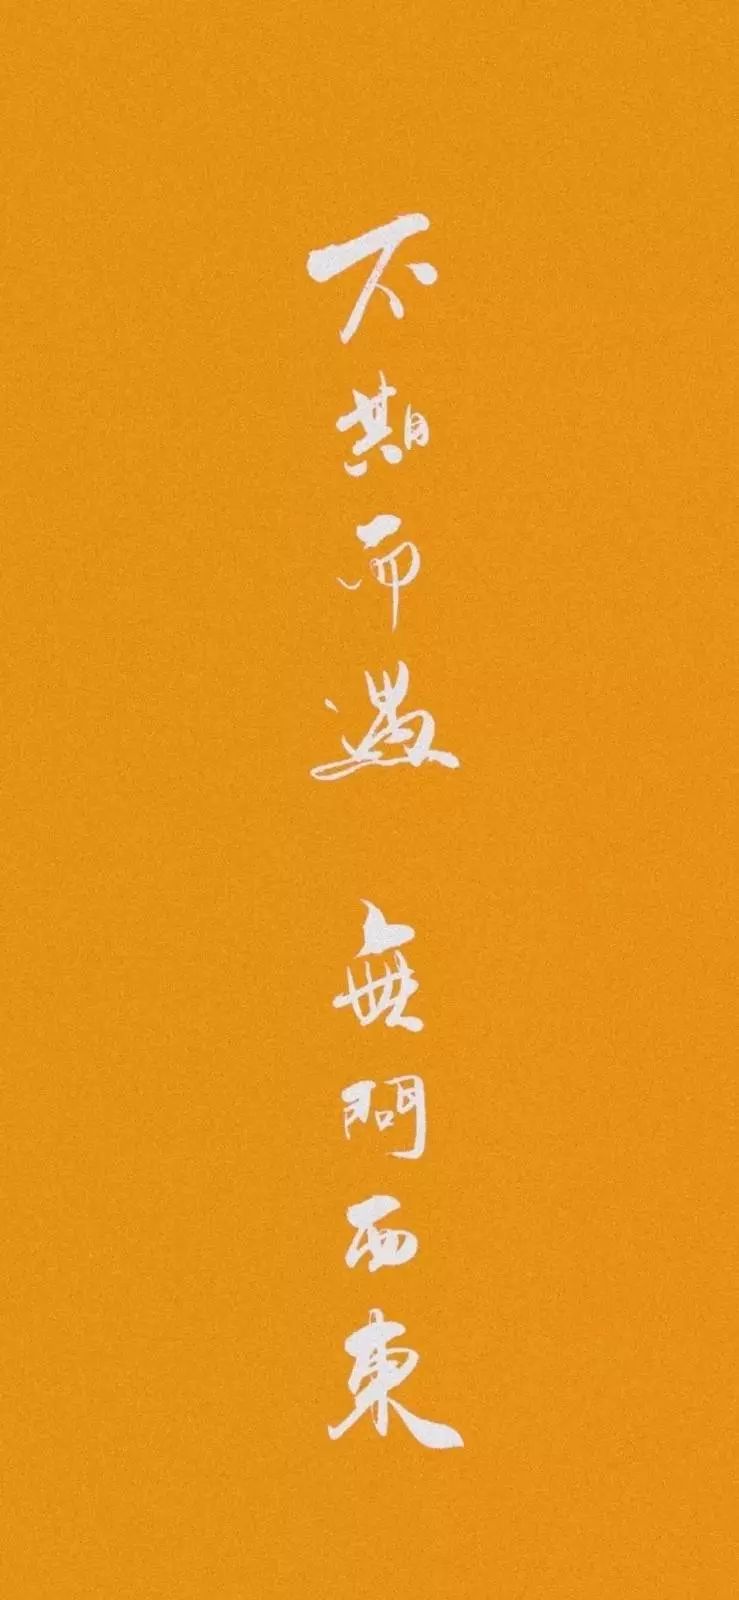 不期而遇
無問西東